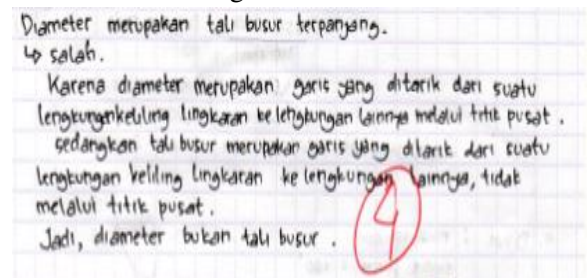 Diameter merupakan tali busur terpanjang.
↳ salah.
Karena diameter merupakan garis yang ditarik dari suatu
lengkungankeliling lingkaran ke lengkungan lainnya melalui titik pusat.
sedangkan tali busur merupakan garis yang ditarik dari suatu
lengkungan keliling lingkaran ke lengkungan lainnya, tidak
melalui titik pusat.
Jadi, diameter bukan tali busur.
4